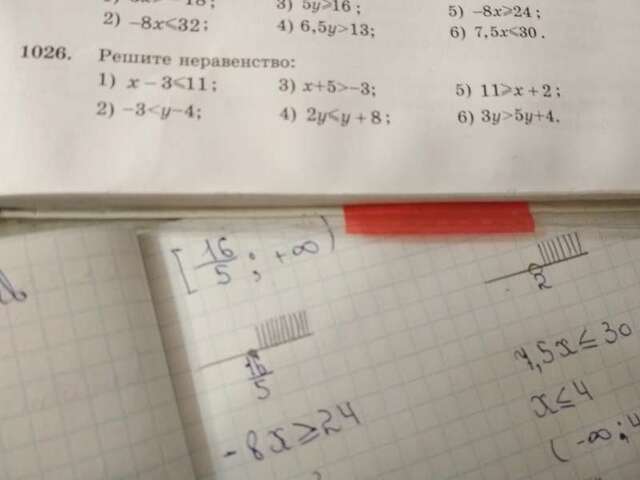 3) 5y⩾16;
5) −8x⩾24;
2) −8x⩽32;
4) 6,5y>13;
6) 7,5x⩽30.
1026. Решите неравенство:
1) x − 3⩽11;
3) x+5>−3;
5) 11⩾x + 2;
2) −3<y−4;
4) 2y⩽y + 8;
6) 3y>5y+4.
[16/5; +∞)
2
16/5
7,5x≤30
-8x≥24
x≤4
(-∞;4